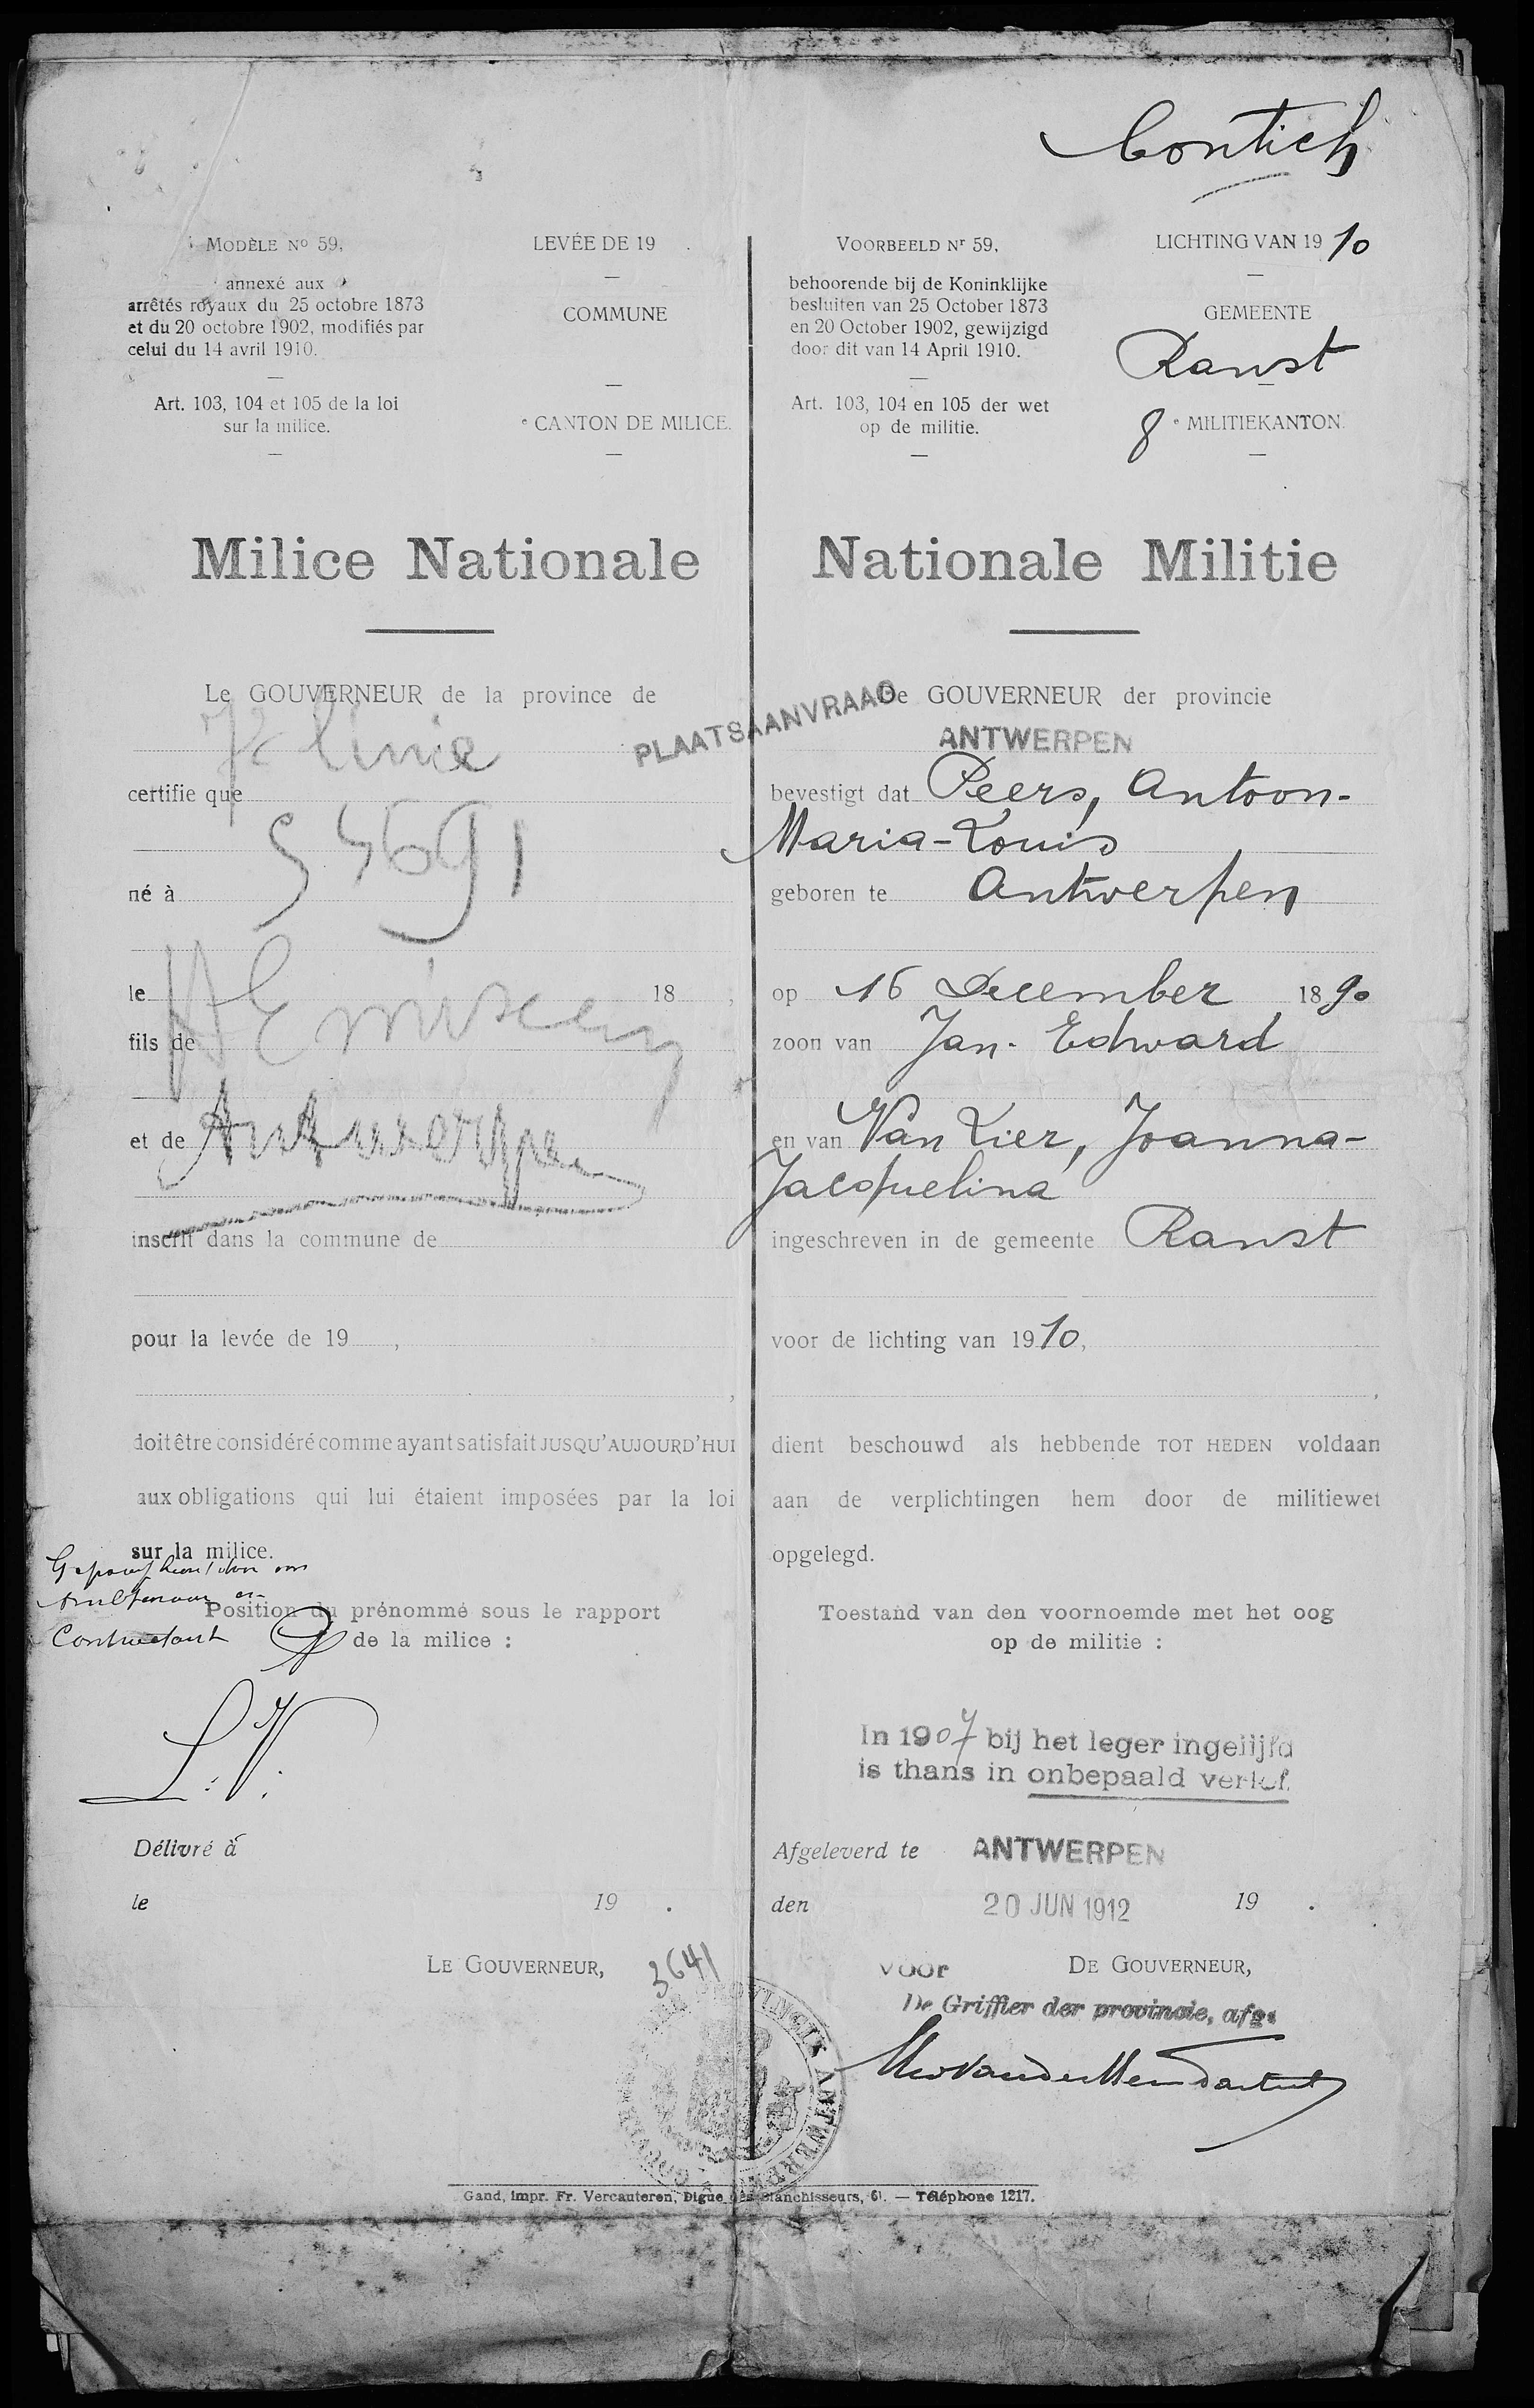 Contich
MODÈLE No 59,
annexé aux
arrêtés royaux du 25 octobre 1873
et du 20 octobre 1902, modifiés par
celui du 14 avril 1910.
Art. 103, 104 et 105 de la loi
sur la milice.
LEVÉE DE 19 .
COMMUNE
e CANTON DE MILICE.
Milice Nationale
Le GOUVERNEUR de la province de
certifie que
55691
né à
le 18 ,
fils de
et de Antwerpen
inscrit dans la commune de
pour la levée de 19 ,
doit être considéré comme ayant satisfait JUSQU'AUJOURD'HUI
aux obligations qui lui étaient imposées par la loi
sur la milice.
Position du prénommé sous le rapport
de la milice :
Délivré à
le 19 .
LE GOUVERNEUR,
3641
VOORBEELD Nr 59,
behoorende bij de Koninklijke
besluiten van 25 October 1873
en 20 October 1902, gewijzigd
door dit van 14 April 1910.
Art. 103, 104 en 105 der wet
op de militie.
LICHTING VAN 1910
GEMEENTE
Ranst
8e MILITIEKANTON.
Nationale Militie
PLAATSAANVRAAG
De GOUVERNEUR der provincie
ANTWERPEN
bevestigt dat Peers, Antoon-
Maria-Louis
geboren te Antwerpen
op 16 December 1890
zoon van Jan-Edward
en van Van Lier, Joanna-
Jacquelina
ingeschreven in de gemeente Ranst
voor de lichting van 1910,
dient beschouwd als hebbende TOT HEDEN voldaan
aan de verplichtingen hem door de militiewet
opgelegd.
Toestand van den voornoemde met het oog
op de militie :
In 1907 bij het leger ingelijfd
is thans in onbepaald verlof.
Afgeleverd te ANTWERPEN
den 20 JUN 1912 19 .
voor DE GOUVERNEUR,
De Griffier der provincie, afg.
Gand, impr. Fr. Vercauteren, Digue des Blanchisseurs, 61. — Téléphone 1217.